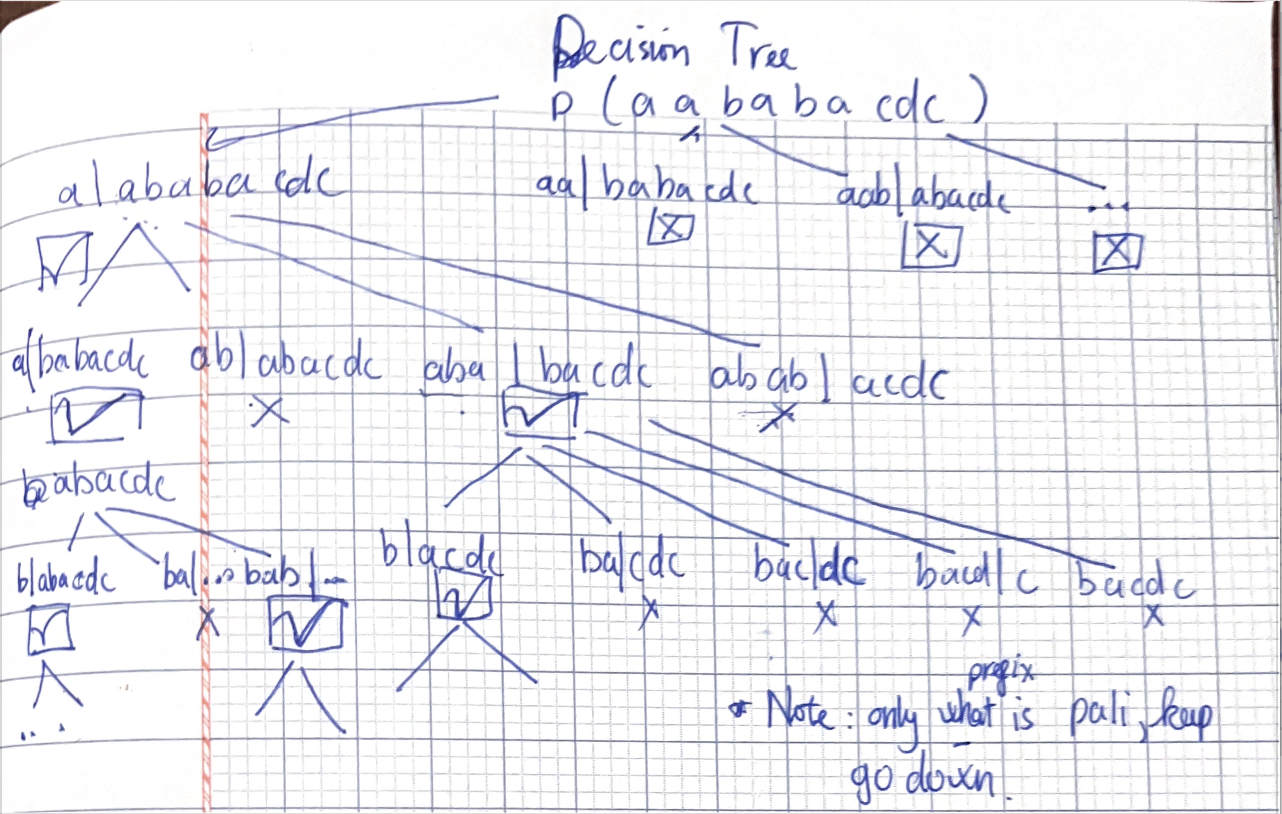 Decision Tree
p (aababacdc)
a|ababacdc aa|babacdc aab|abacdc ...
a|babacdc ab|abacdc aba|bacdc abab|acdc
babacdc
b|abacdc ba|... bab|... b|acdc ba|cdc bac|dc bacd|c bacdc
prefix
* Note: only what is pali, keep
go down.
...